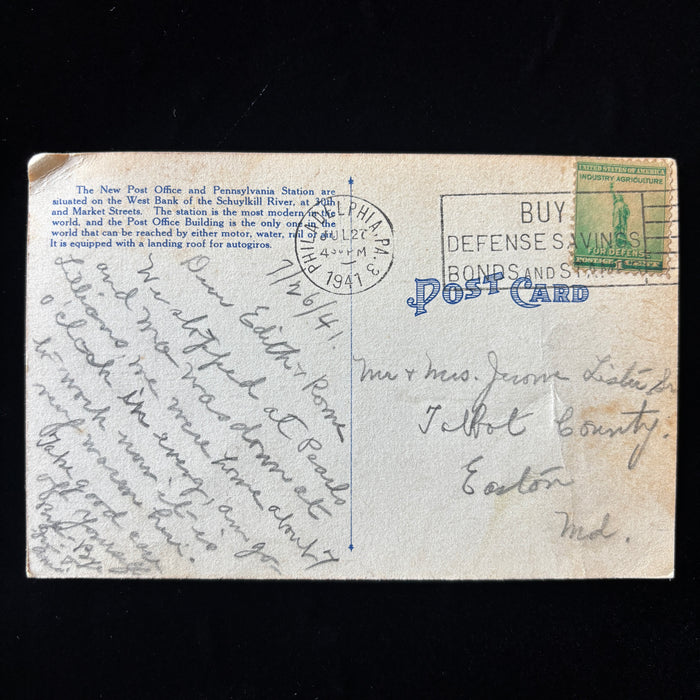 The New Post Office and Pennsylvania Station are
situated on the West Bank of the Schuylkill River, at 30th
and Market Streets. The station is the most modern in the
world, and the Post Office Building is the only one in the
world that can be reached by either motor, water, rail or air.
It is equipped with a landing roof for autogiros.
PHILADELPHIA, PA. 3
JUL 27
4 PM
1941
BUY
DEFENSE SAVINGS
BONDS AND
UNITED STATES OF AMERICA
INDUSTRY AGRICULTURE
FOR DEFENSE
POSTAGE 1
POST CARD
7/26/41.
Dear Edith &
We stopped at Pearls
and Ma was down at
Lillians, we were home about 7
o clock in eveng, am go
to work now it is
very warm here.
Take good care
of
Mr & Mrs. Jerome Lister Sr
Talbot County.
Easton
Md.